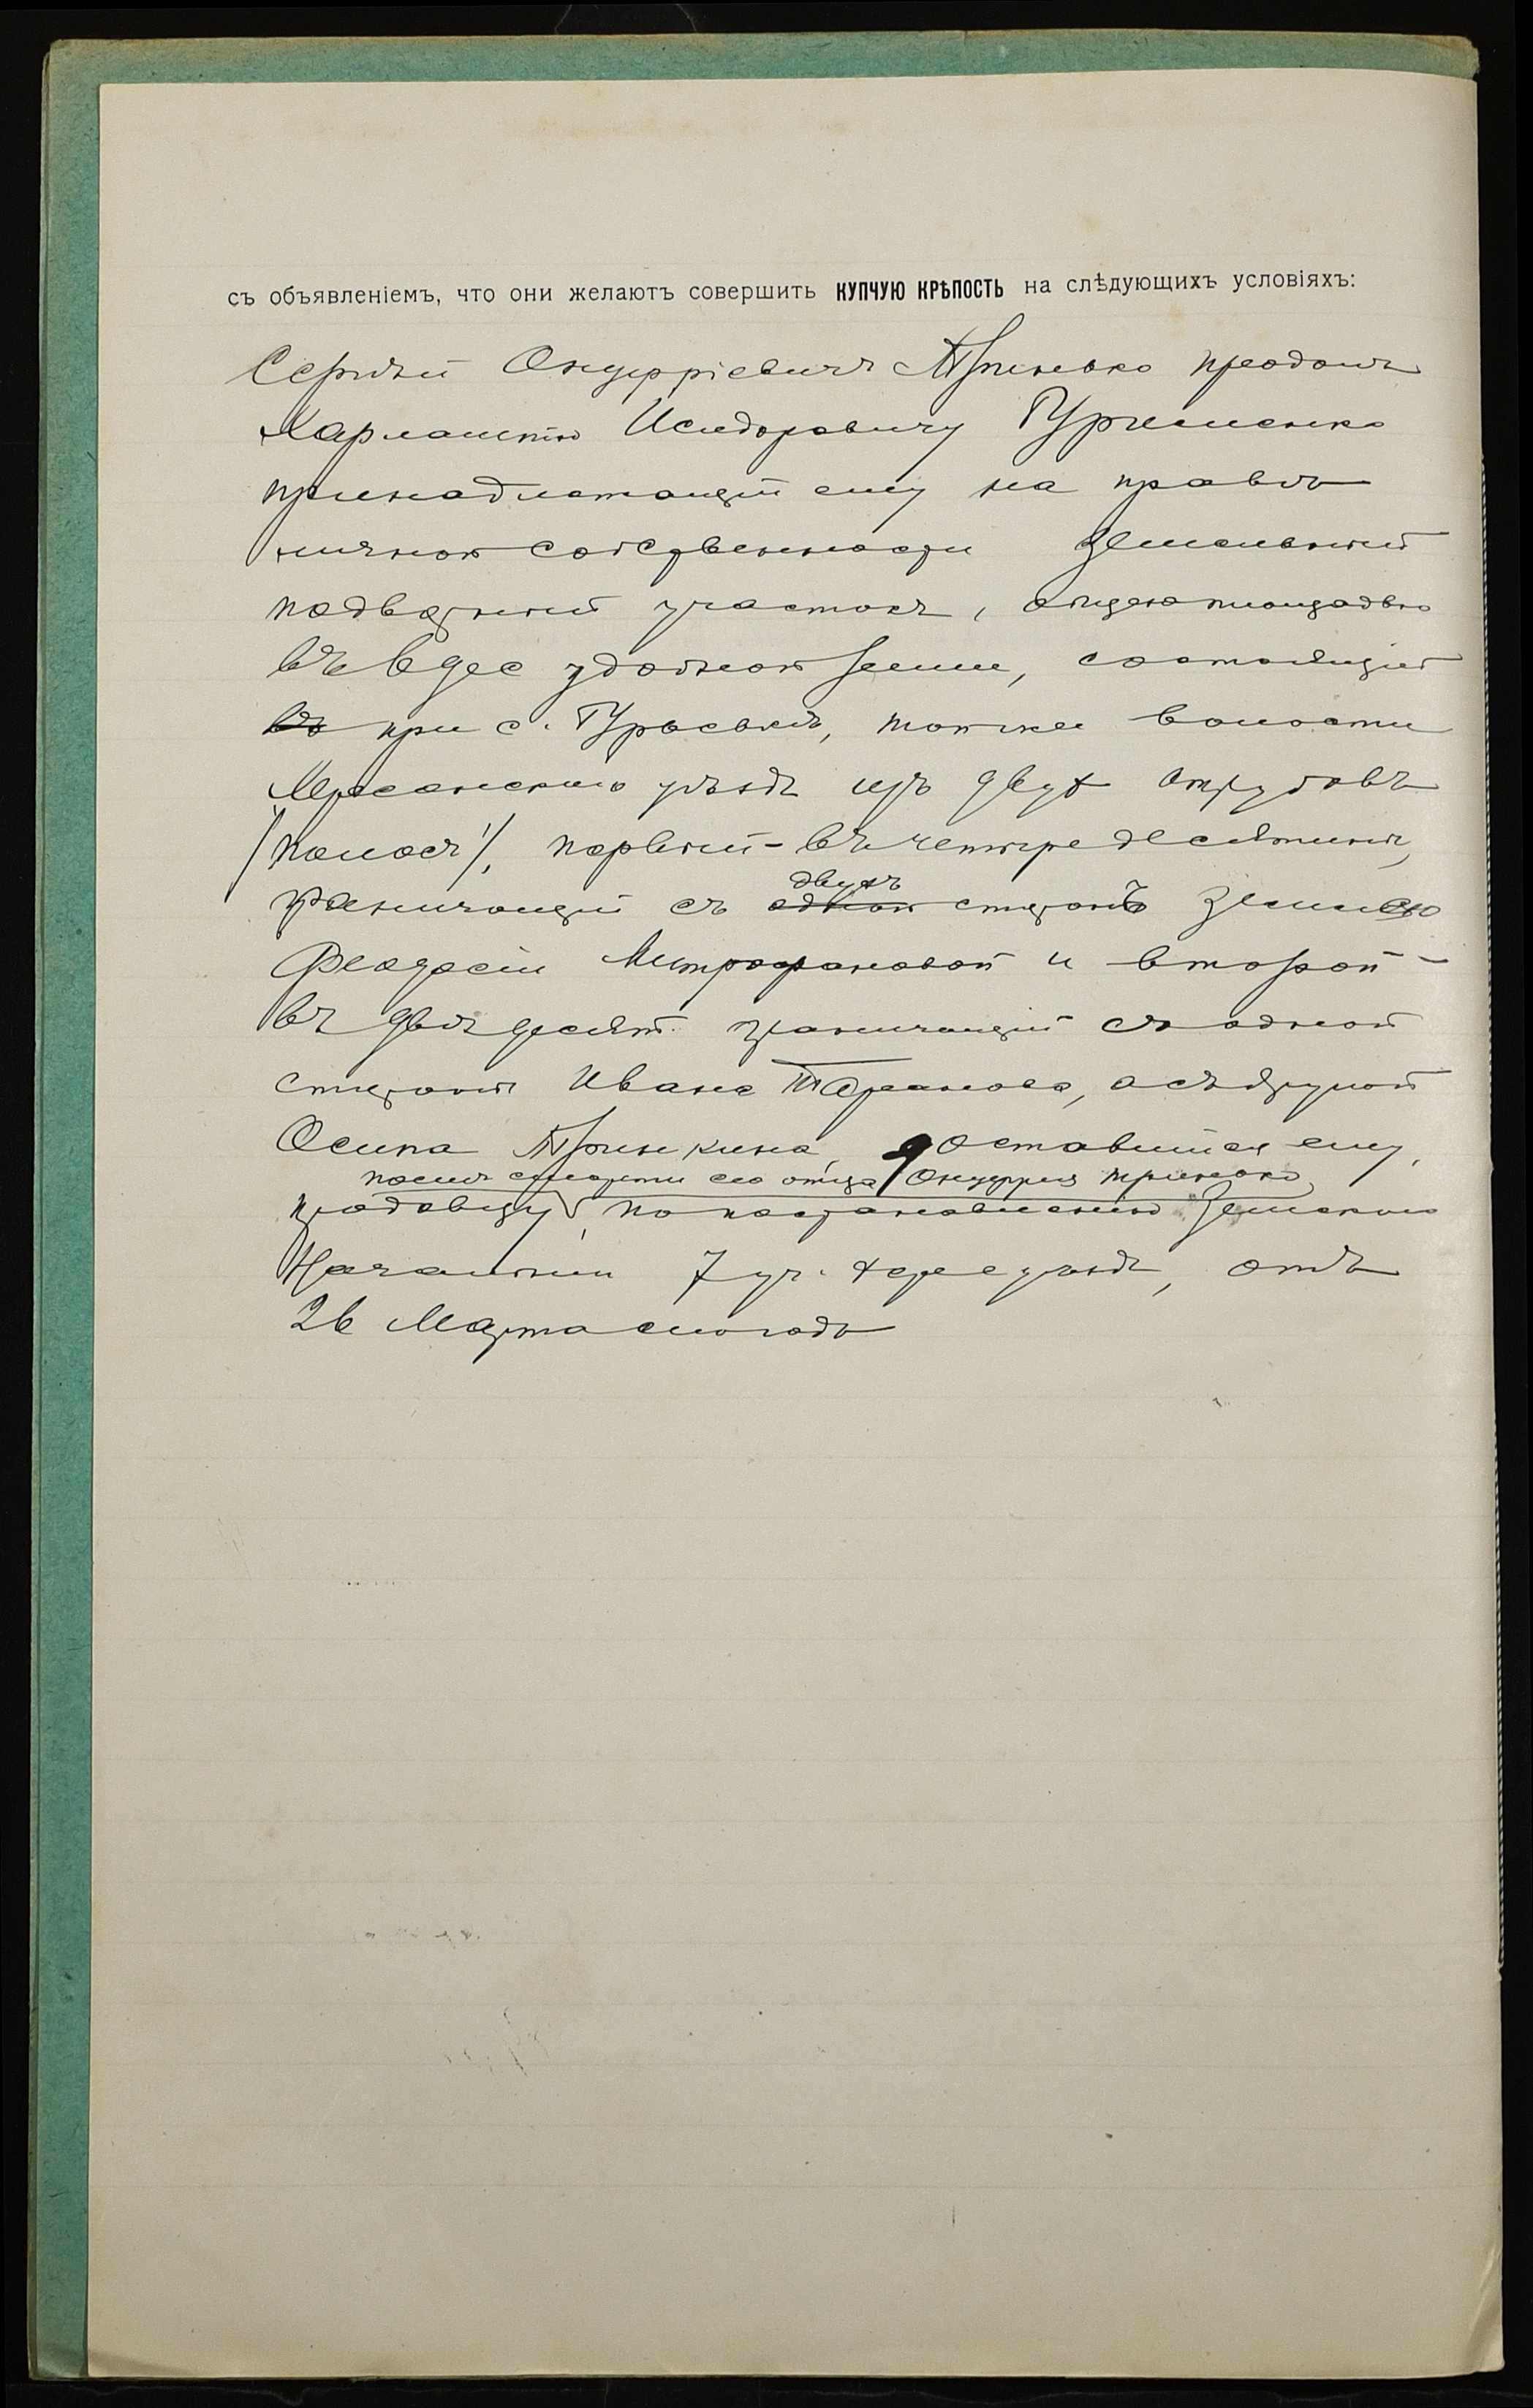 съ объявленіемъ, что они желаютъ совершить КУПЧУЮ КРѢПОСТЬ на слѣдующихъ условіяхъ:
Сергѣй Онуфріевичъ продалъ
Харлампію Исидоровичу
принадлежащій ему на правѣ
личной собственности земельный
надѣльный участокъ, общею площадью
въ 6 дес удобной земли, состоящій
въ при с. той же волости
Херсонскаго уѣзда изъ двухъ отрубовъ
/"полосъ"/, первый - въ четыре десятины,
граничащій съ одной двухъ сторонъ землею
Феодосіи Митрофановой и второй -
въ двѣ десят. граничащій съ одной
стороны Ивана а съ другой
Осипа доставшійся ему,
послѣ смерти его отца Онуфрія
продавцу, по постановленію Земскаго
Начальника 7 уч. Херс уѣзда, отъ
26 Марта сего года